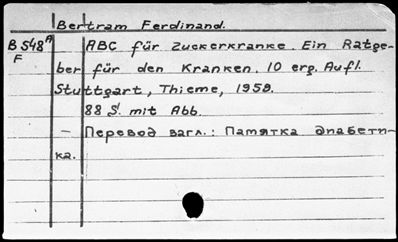 Bertram Ferdinand.
B 548 A ABC für Zuckerkranke. Ein Ratge-
F ber für den Kranken. 10 erg. Aufl.
Stuttgart, Thieme, 1958.
88 S. mit Abb.
— Перевод загл.: Памятка диабети-
ка.